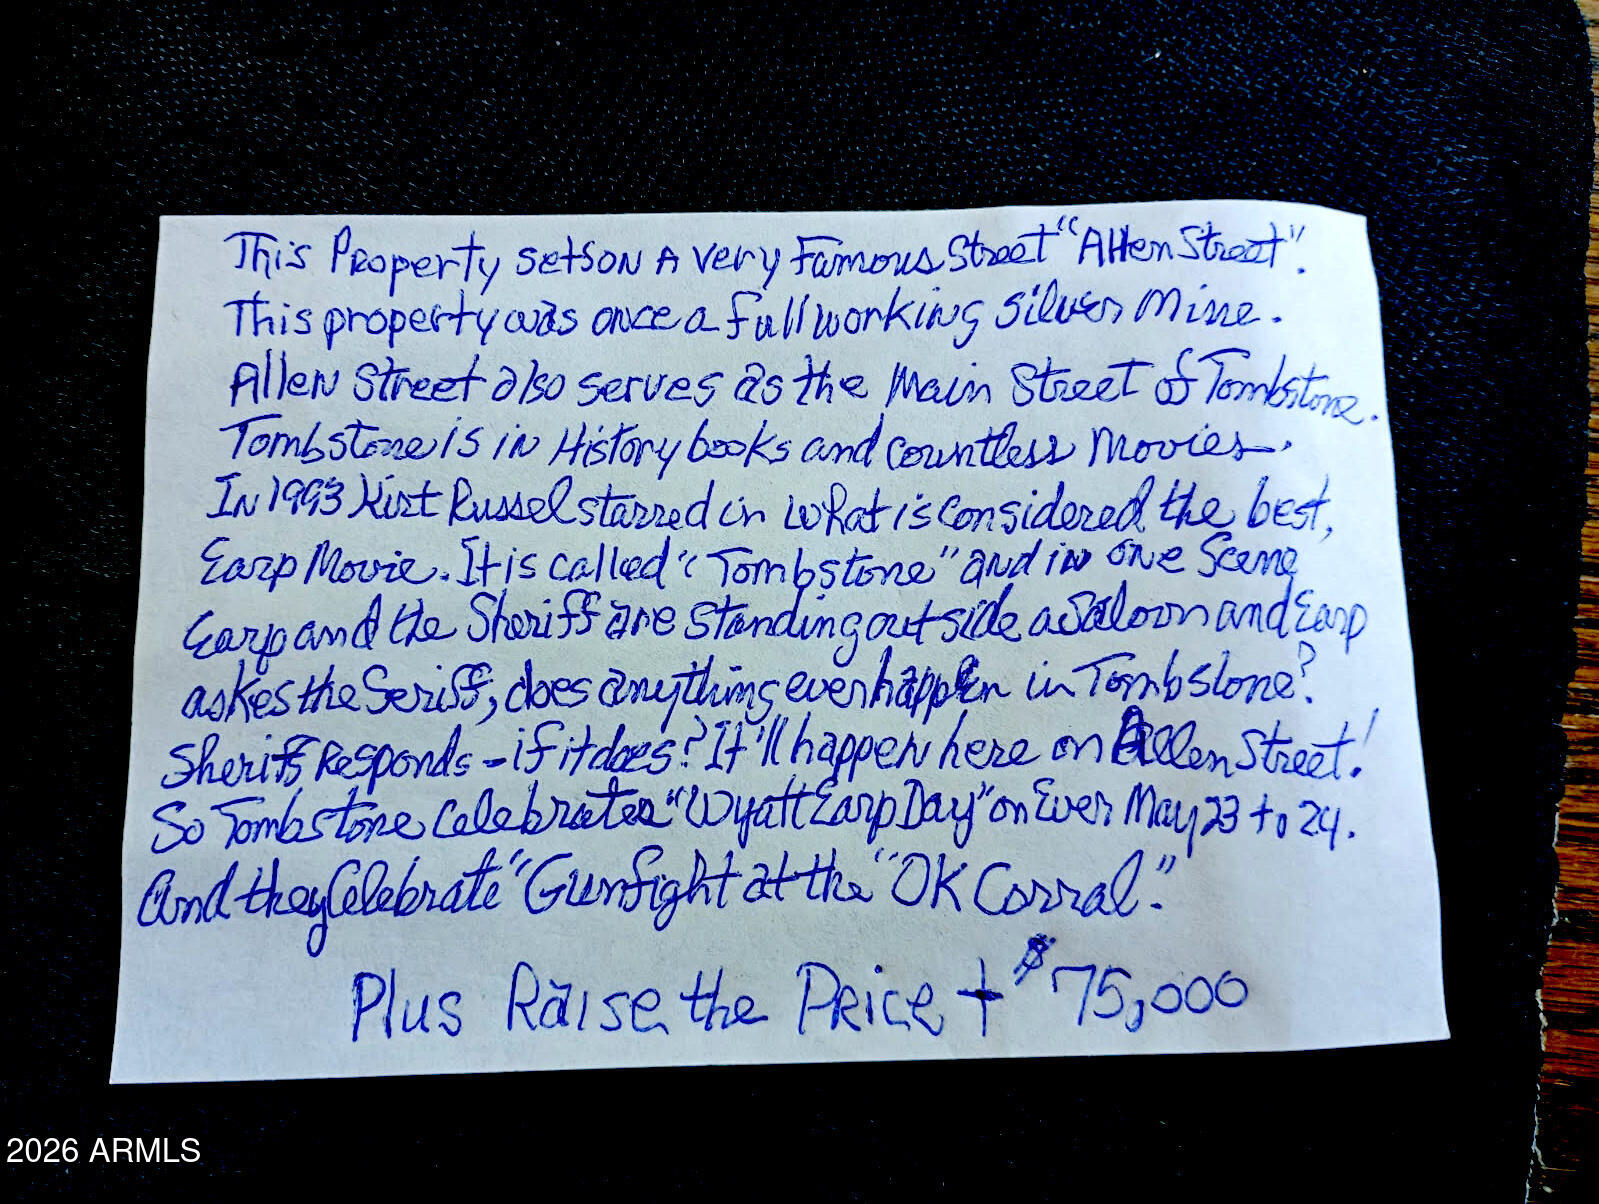 This Property setson A very Famous Street "Allen Street".
This property was once a full working Silver Mine.
Allen Street also serves as the Main Street of Tombstone.
Tombstone is in History books and countless Movies.
In 1993 Kirt Russel starred in what is considered the best,
Earp Movie. It is called "Tombstone" and in one Scene
Earp and the Sheriff are standing outside a Saloon and Earp
askes the Seriff, does anything ever happen in Tombstone?
Sheriff Responds - if it does? It'll happen here on Allen Street!
So Tombstone celebrates "Wyatt Earp Day" on Ever May 23 to 24.
And they Celebrate "Gunfight at the "OK Corral."
Plus Raise the Price + $75,000
2026 ARMLS